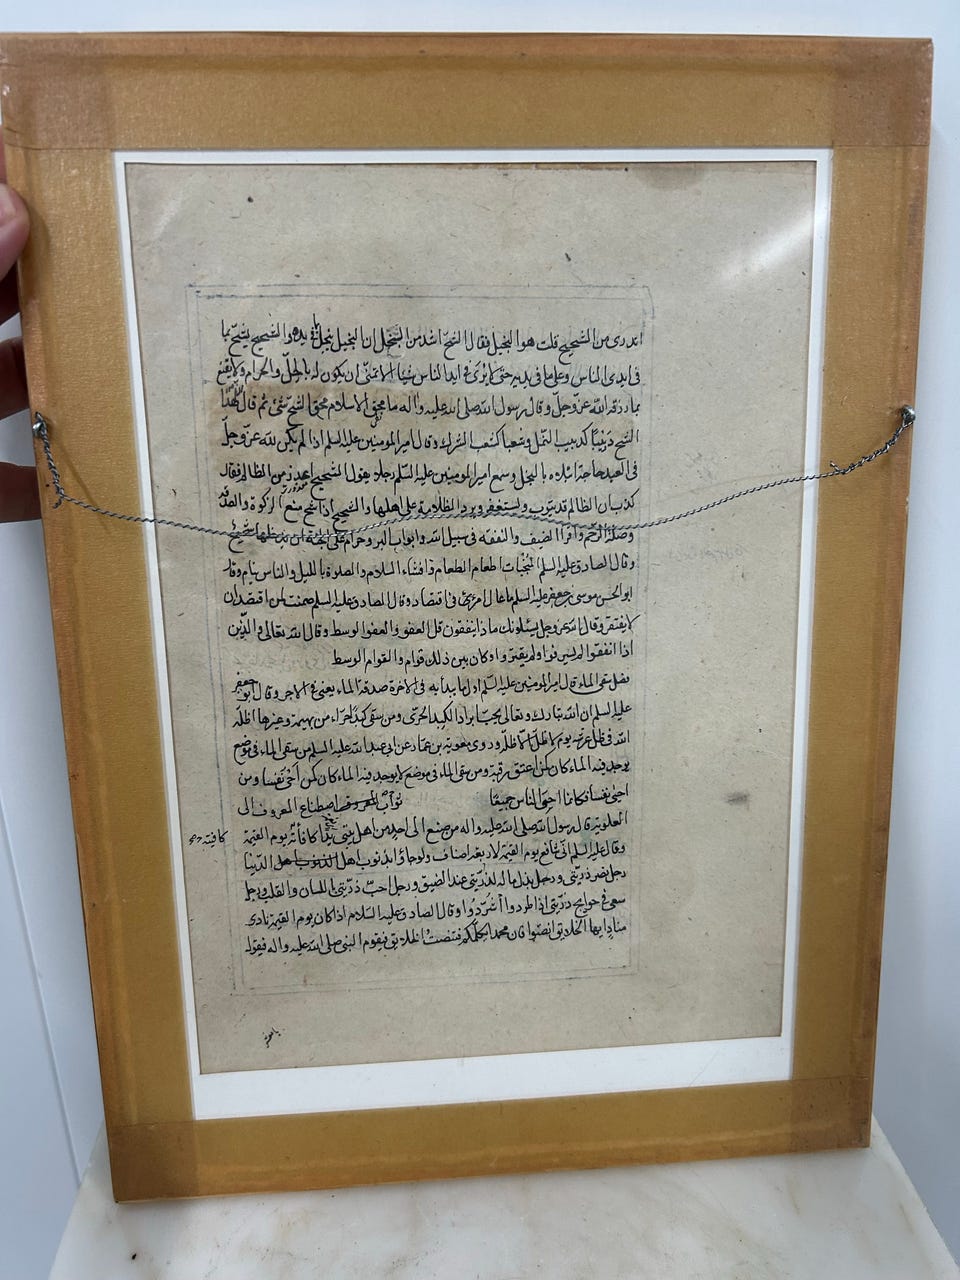 اتدری من الشحیح قلت هو البخیل فقال الشح اشد من البخل ان البخیل یبخل بما فی یده والشحیح یشح بما
فی ایدی الناس وعلی ما فی یدیه حتی لا یری فی ایدی الناس شیئا الا تمنی ان یکون له بالحل والحرام ولا یقنع
بما رزقه الله عز وجل وقال رسول الله صلی الله علیه واله ما محق الاسلام محق الشح شئ ثم قال ان لهذا
الشح دبیبا کدبیب النمل وشعبا کشعب الشرک وقال امیر المومنین علیه السلم اذا لم یکن لله عز وجل
فی العبد حاجة ابتلاه بالبخل وسمع امیر المومنین علیه السلم رجلا یقول الشحیح اعذر من الظالم فقال
کذبت ان الظالم قد یتوب ویستغفر ویرد الظلامة علی اهلها والشحیح اذا شح منع الزکوة والصدقة
وصلة الرحم واقراء الضیف والنفقة فی سبیل الله وابواب البر وحرام علی الجنة ان یدخلها شحیح
وقال الصادق علیه السلم المنجیات اطعام الطعام وافشاء السلام والصلوة باللیل والناس نیام وقال
ابو الحسن موسی بن جعفر علیه السلم ما عال امرئ فی اقتصاد وقال الصادق علیه السلم ضمنت لمن اقتصد ان
لا یفتقر وقال الله عز وجل یسئلونک ماذا ینفقون قل العفو والعفو الوسط وقال الله تعالی والذین
اذا انفقوا لم یسرفوا ولم یقتروا وکان بین ذلک قواما والقوام الوسط
فضل سقی الماء قال امیر المومنین علیه السلم اول ما یبدأ به فی الاخرة صدقة الماء یعنی فی الاجر وقال ابو جعفر
علیه السلم ان الله تبارک وتعالی یحب ابراد الکبد الحری ومن سقی کبدا حراء من بهیمة وغیرها اظله
الله فی ظل عرشه یوم لا ظل الا ظله وروی معویة بن عمار عن ابی عبد الله علیه السلم من سقی الماء فی موضع
یوجد فیه الماء کان کمن اعتق رقبة ومن سقی الماء فی موضع لا یوجد فیه الماء کان کمن احیی نفسا ومن
احیی نفسا فکانما احیی الناس جمیعا ثواب اصطناع المعروف الی
العلویة قال رسول الله صلی الله علیه واله من صنع الی احد من اهل بیتی یدا کافأته یوم القیمة
وقال علیه السلم انی شافع یوم القیمة لاربعة اصناف ولو جاؤا بذنوب اهل الدنیا
رجل نصر ذریتی ورجل بذل ماله لذریتی عند الضیق ورجل احب ذریتی باللسان والقلب ورجل
سعی فی حوایج ذریتی اذا طردوا أو شردوا وقال الصادق علیه السلام اذا کان یوم القیمة نادی
مناد ایها الخلایق انصتوا فان محمدا یکلمکم فتنصت الخلایق فیقوم النبی صلی الله علیه واله فیقول